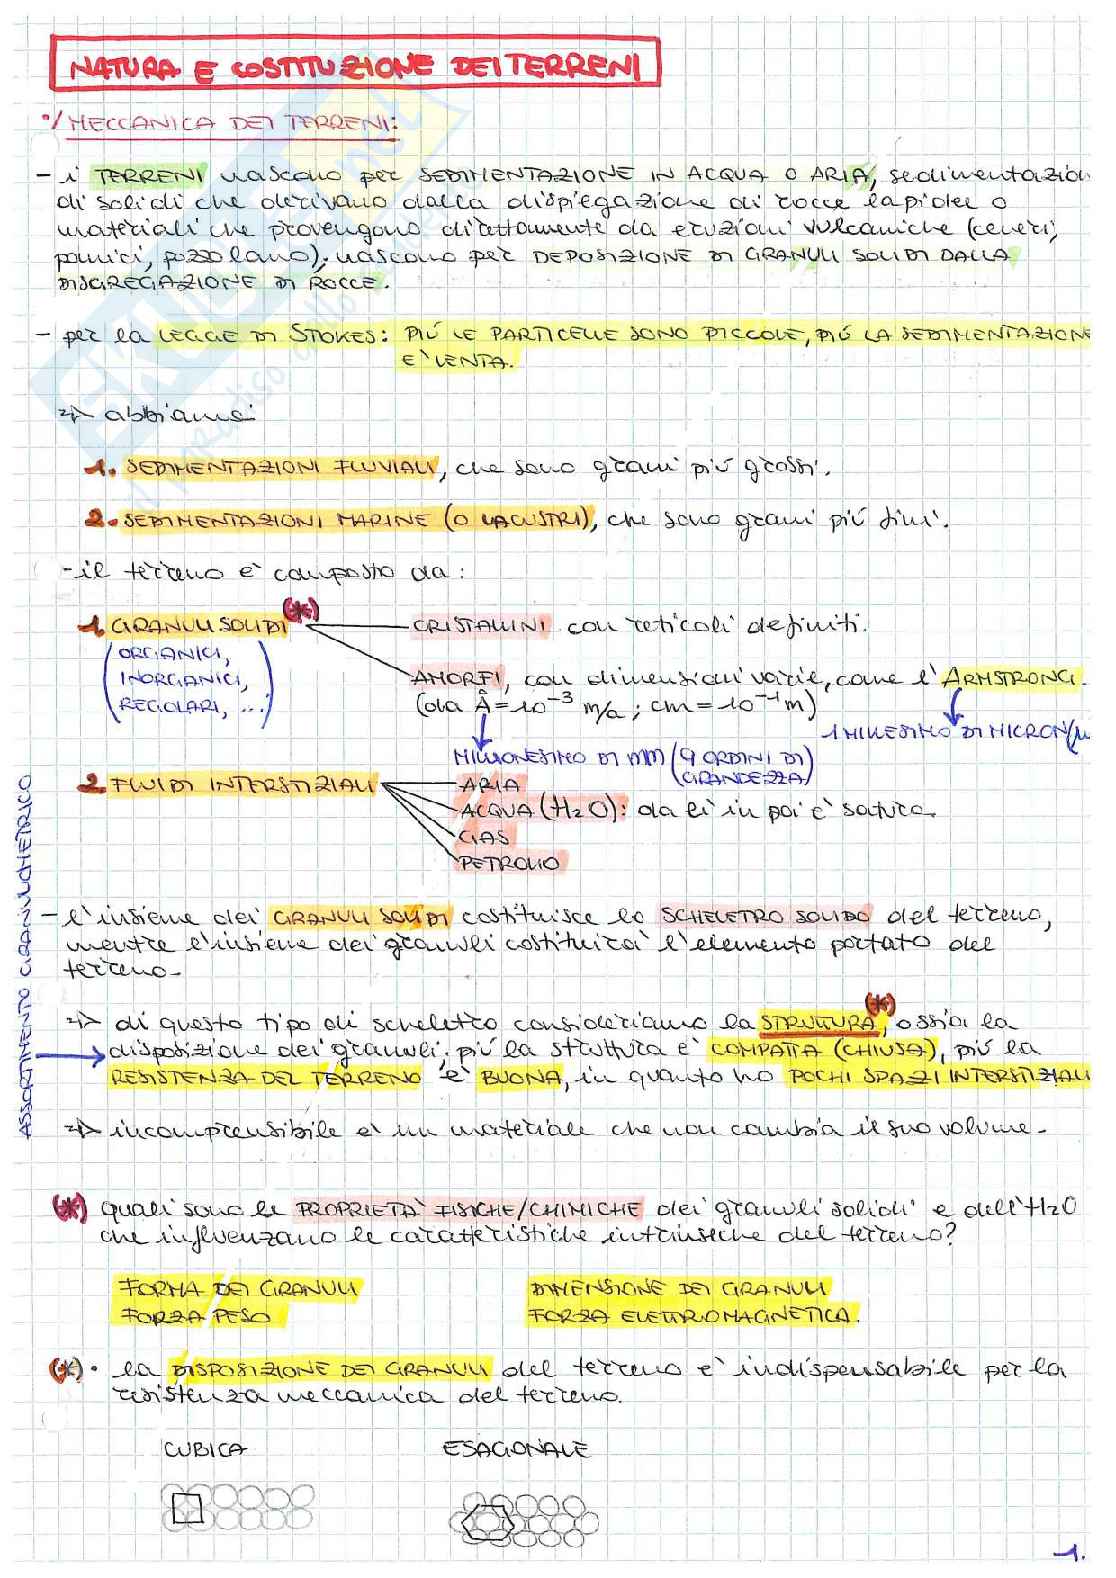 NATURA E COSTITUZIONE DEI TERRENI
MECCANICA DEI TERRENI:
- i TERRENI nascono per SEDIMENTAZIONE IN ACQUA O ARIA, sedimentazion
di solidi che derivano dalla dispiegazione di rocce lapidee o
materiali che provengono direttamente da eruzioni vulcaniche (ceneri,
pomici, pozzolano); nascono per DEPOSIZIONE DI GRANULI SOLIDI DALLA
DISGREGAZIONE DI ROCCE.
- per la LEGGE DI STOKES: PIÚ LE PARTICELLE SONO PICCOLE, PIÚ LA SEDIMENTAZIONE
E' LENTA.
=> abbiamo:
1. SEDIMENTAZIONI FLUVIALI, che sono grani più grossi.
2. SEDIMENTAZIONI MARINE (O LACUSTRI), che sono grani più fini.
- il terreno e' composto da:
1. GRANULI SOLIDI (*) CRISTALLINI con reticoli definiti.
(ORGANICI,
INORGANICI,
REGOLARI, ...)
AMORFI, con dimensioni varie, come l'ARMSTRONG.
(da Å = 10⁻³ m/a ; cm = 10⁻⁴ m)
1 MILLESIMO DI MICRON (μ
MILIONESIMO DI MM (9 ORDINI DI
GRANDEZZA)
2. FLUIDI INTERSTIZIALI
ARIA
ACQUA (H₂O): da lì in poi è satura.
GAS
PETROLIO
ASSORTIMENTO GRANULOMETRICO
- l'insieme dei GRANULI SOLIDI costituisce lo SCHELETRO SOLIDO del terreno,
mentre l'insieme dei granuli costituirà l'elemento portato del
terreno.
=> di questo tipo di scheletro consideriamo la STRUTTURA (*), ossia la
disposizione dei granuli; più la struttura e' COMPATTA (CHIUSA), più la
RESISTENZA DEL TERRENO e' BUONA, in quanto ho POCHI SPAZI INTERSTIZIALI
=> incomprensibile e' un materiale che non cambia il suo volume.
(*) quali sono le PROPRIETÀ FISICHE/CHIMICHE dei granuli solidi e dell'H₂O
che influenzano le caratteristiche intrinseche del terreno?
FORMA DEI GRANULI DIMENSIONE DEI GRANULI
FORZA PESO FORZA ELETTROMAGNETICA.
(*) • la DISPOSIZIONE DEI GRANULI del terreno e' indispensabile per la
resistenza meccanica del terreno.
CUBICA ESAGONALE
1.